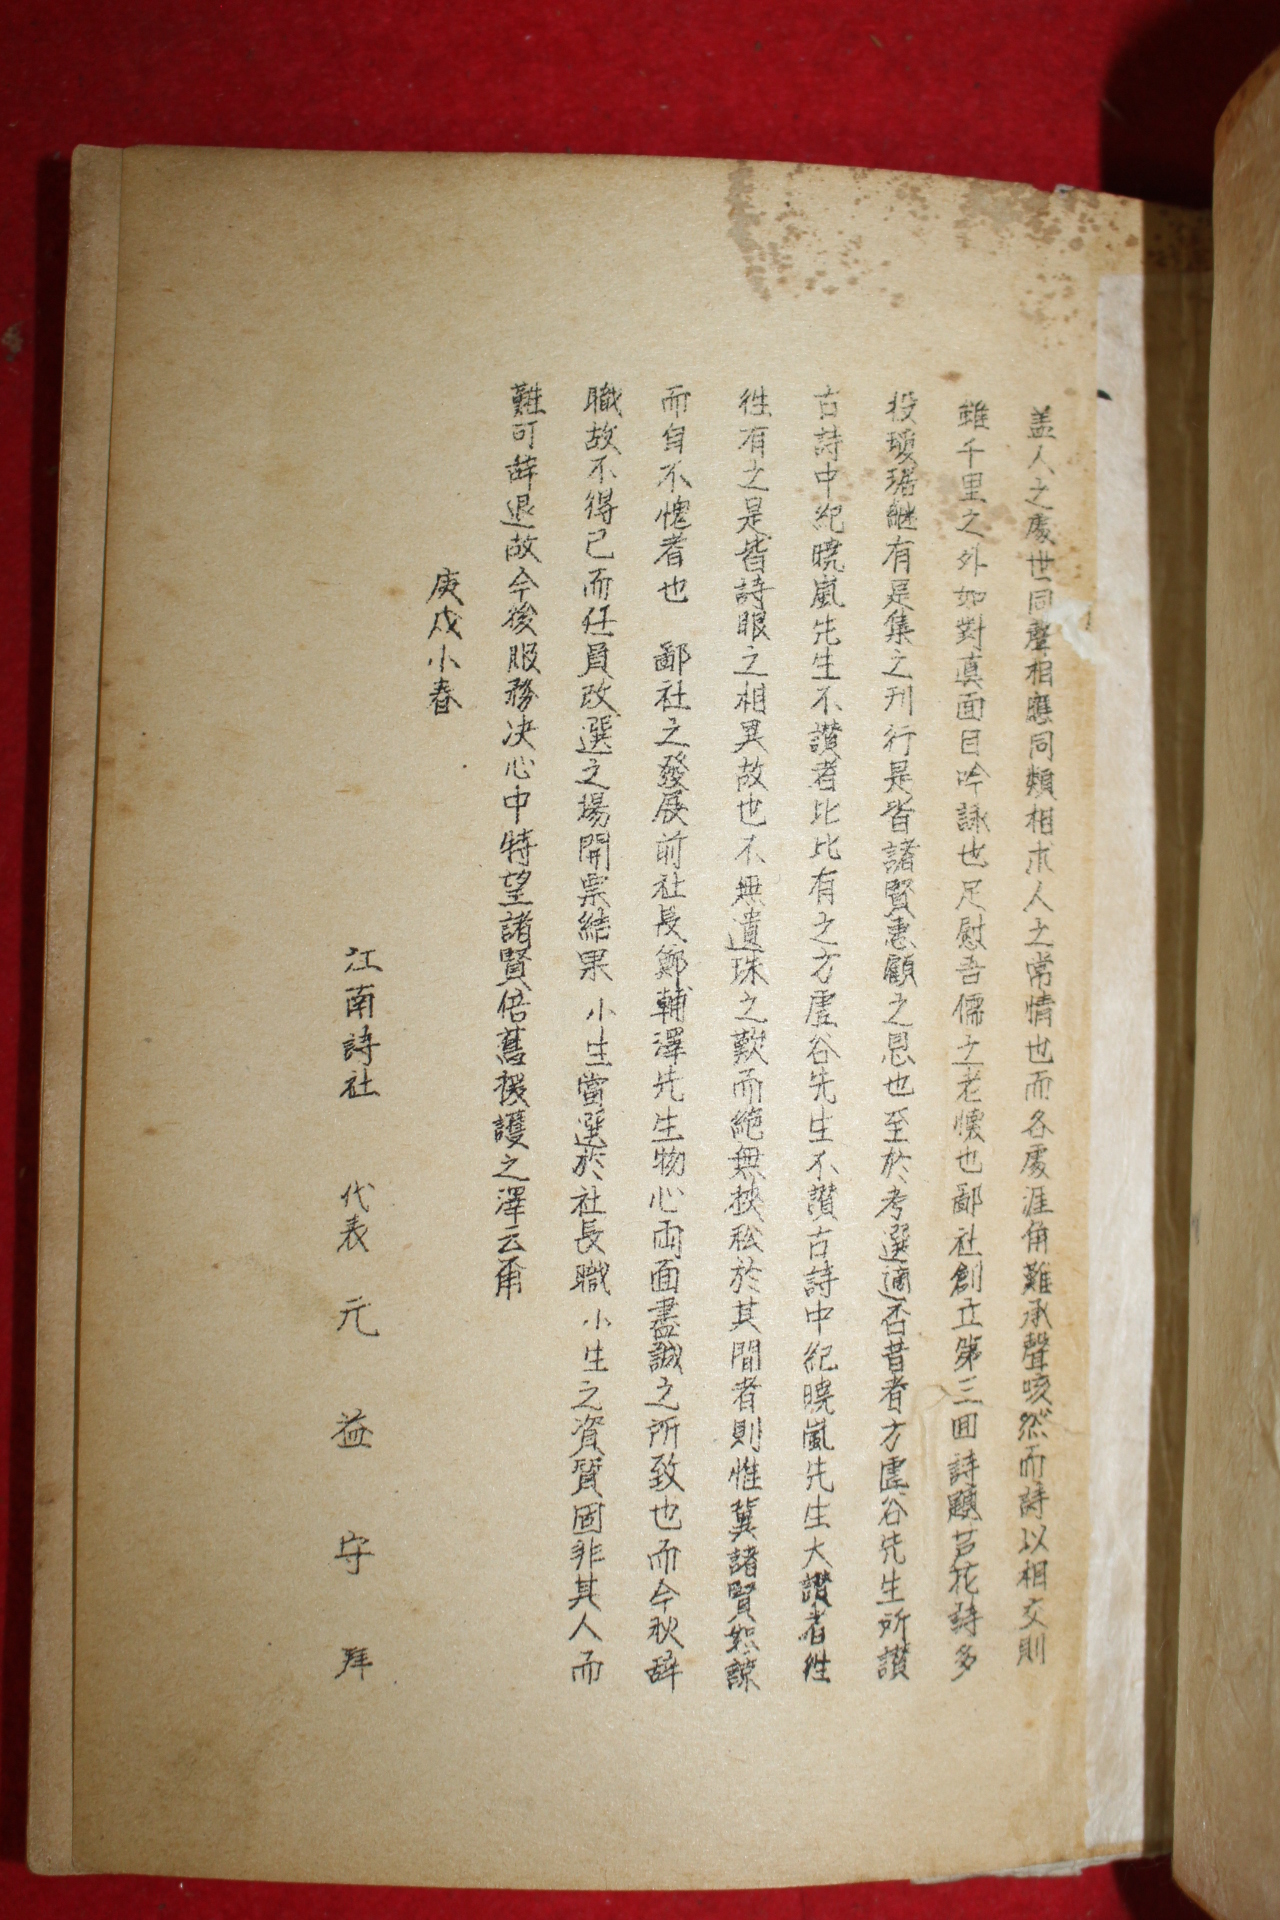 盖人之處世同聲相應同類相求人之常情也而各處涯角難承聲咳然而詩以相交則
雖千里之外如對眞面目吟詠也足慰吾儒之老懷也鄙社創立第三回詩題芦花詩多
投瓊琚継有是集之刊行是皆諸賢惠顧之恩也至於考選適否昔者方虛谷先生所讚
古詩中紀曉嵐先生不讃者比比有之方虛谷先生不讃古詩中紀曉嵐先生大讃者徃
徃有之是皆詩眼之相異故也不無遺珠之歎而絶無挾私於其間者則惟冀諸賢恕諒
而自不愧者也　鄙社之發展前社長鄭輔澤先生物心両面盡誠之所致也而今秋辞
職故不得已而任員改選之場開票結果小生當選於社長職小生之資質固非其人而
難可辞退故今後服務决心中特望諸賢倍舊援護之澤云爾
庚戍小春
江南詩社　代表　元益守　拜